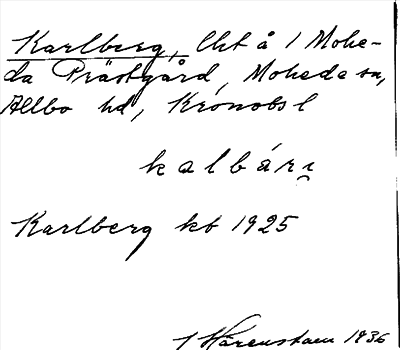 Karlberg, lht å 1 Mohe-
da Prästgård, Moheda sn,
Allbo hd, Kronobs l
kalbárɪ
Karlberg kb 1925
J Hårenstam 1936